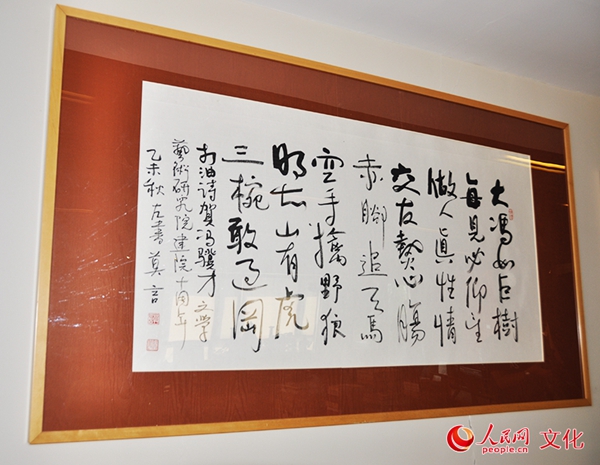 大馮如巨樹
每見必仰望
做人眞性情
交友熱心腸
赤腳追天馬
空手擒野狼
明知山有虎
三碗敢過岡
打油詩賀馮驥才文學
藝術研究院建院十周年
乙未秋左書莫言
人民网 文化
people.cn